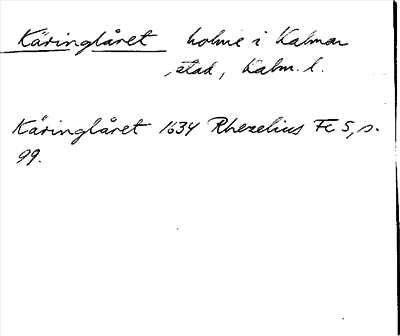 Käringlåret holme i Kalmar
stad, Kalm. l.
Käringlåret 1634 Rhezelius Fc 5, s.
99.